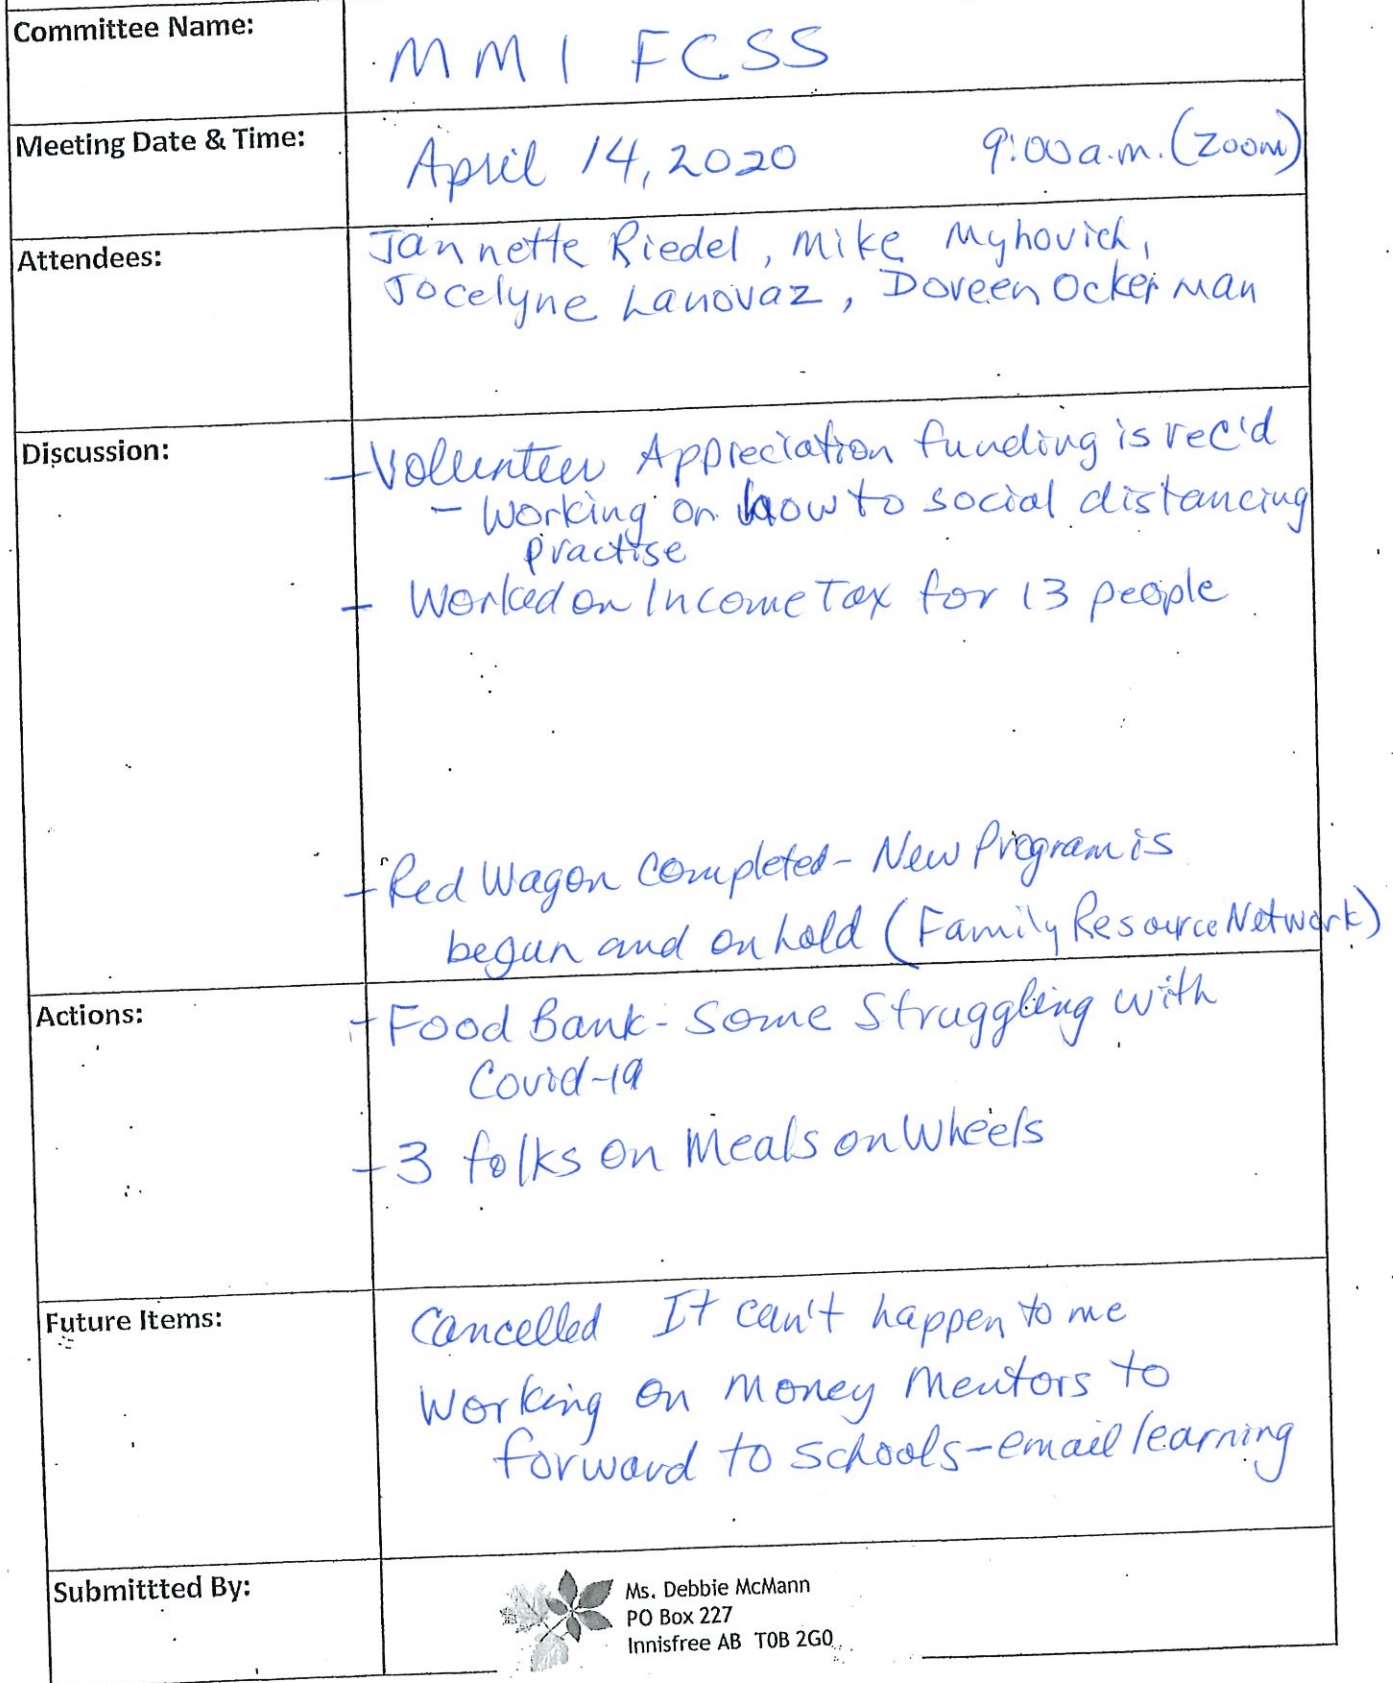 Committee Name:
MMI FCSS
Meeting Date & Time:
April 14, 2020 9:00 a.m. (Zoom)
Attendees:
Jannette Riedel, Mike Myhovich,
Jocelyne Lanovaz, Doreen Ockerman
Discussion:
- Volunteer Appreciation funding is rec'd
- Working on how to social distancing
practise
- Worked on Income Tax for 13 people
- Red Wagon Completed - New Program is
begun and on hold (Family Resource Network)
Actions:
- Food Bank - Some Struggling with
Covid-19
- 3 folks on Meals on Wheels
Future Items:
Cancelled It can't happen to me
Working on Money Mentors to
forward to schools - email learning
Submittted By:
Ms. Debbie McMann
PO Box 227
Innisfree AB T0B 2G0